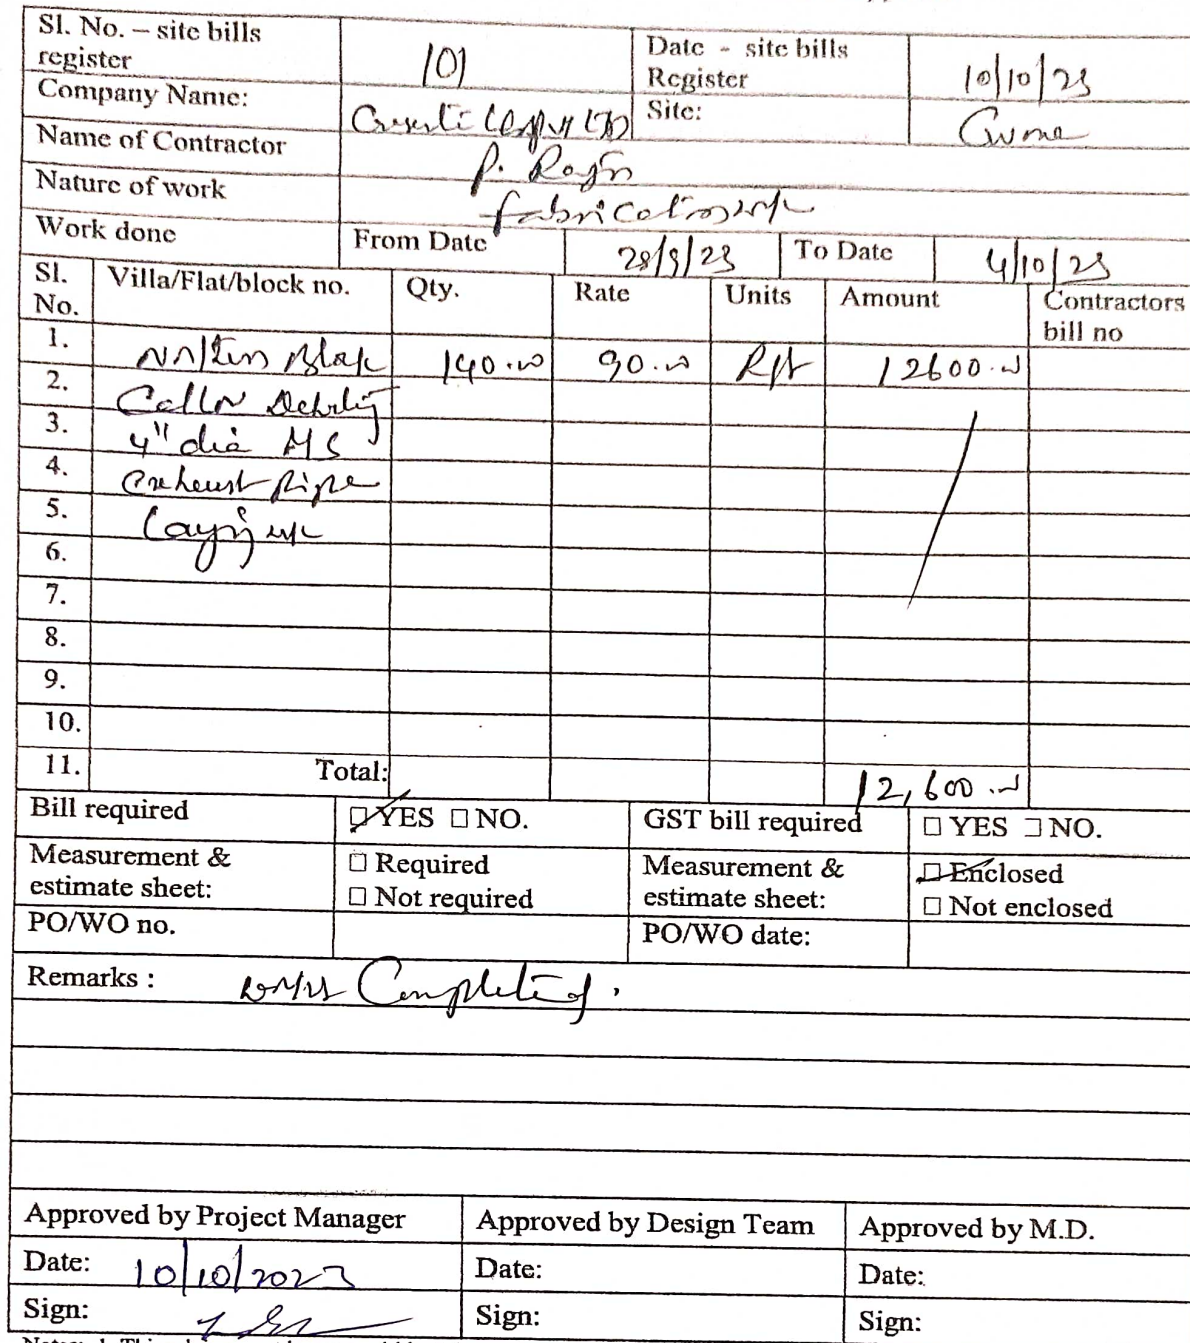 Sl. No. – site bills register 101 Date - site bills Register 10/10/23
Company Name: LTD Site:
Name of Contractor P.
Nature of work fabrication
Work done From Date 28/9/23 To Date 4/10/23
Sl. No. Villa/Flat/block no. Qty. Rate Units Amount Contractors bill no
1. Block 140.00 90.00 Rft 12600.00
2.
3. 4" dia MS
4. Exhaust pipe
5. Laying
6.
7.
8.
9.
10.
11. Total: 12,600.00
Bill required ☑ YES ☐ NO. GST bill required ☐ YES ☐ NO.
Measurement & estimate sheet: ☐ Required ☐ Not required Measurement & estimate sheet: ☑ Enclosed ☐ Not enclosed
PO/WO no. PO/WO date:
Remarks : Completed.
Approved by Project Manager Approved by Design Team Approved by M.D.
Date: 10/10/2023 Date: Date:
Sign: Sign: Sign: